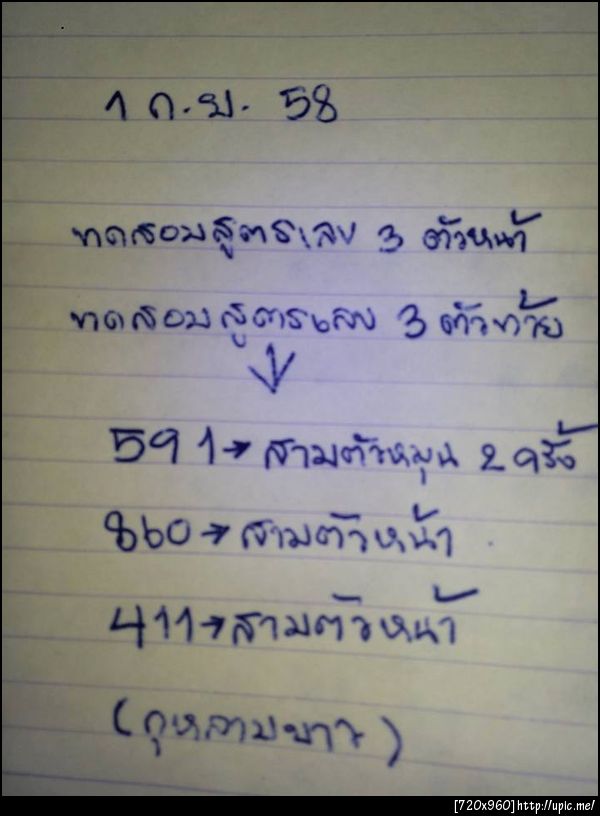 1 ก.ย. 58
ทดสอบสูตรเลข 3 ตัวหน้า
ทดสอบสูตรเลข 3 ตัวท้าย
591→สามตัวหมุน 2 ครั้ง
860→สามตัวหน้า
411→สามตัวหน้า
(กุหลาบขาว)
[720x960]http://upic.me/